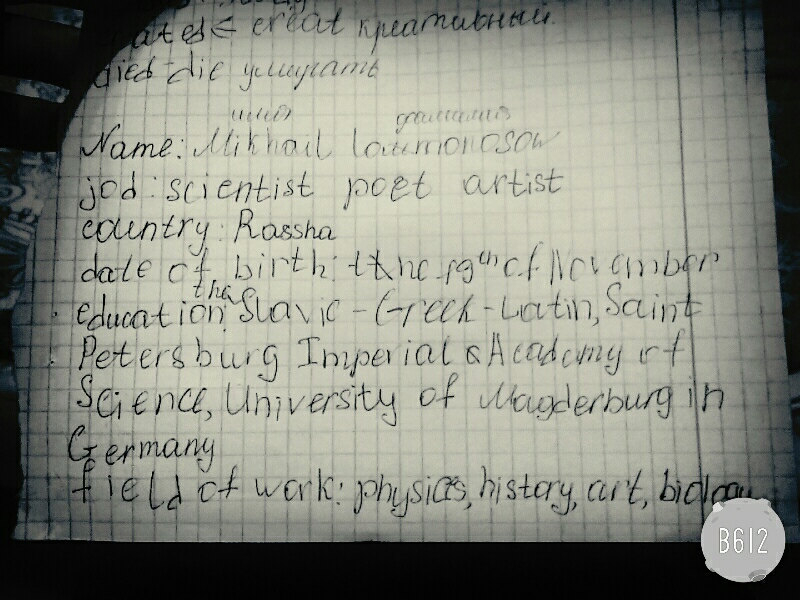 ated← creat креативный.
died-die умирать
имя фамилия
Name: Mikhail Lowmonosow
jod: scientist poet artist
country: Rassha
date of birth: the 19th of November
the
education: Slavic-Greek-Latin, Saint
Petersburg Imperial Academy of
Science, University of Magderburg in
Germany
field of work: physics, history, art, biology
B612